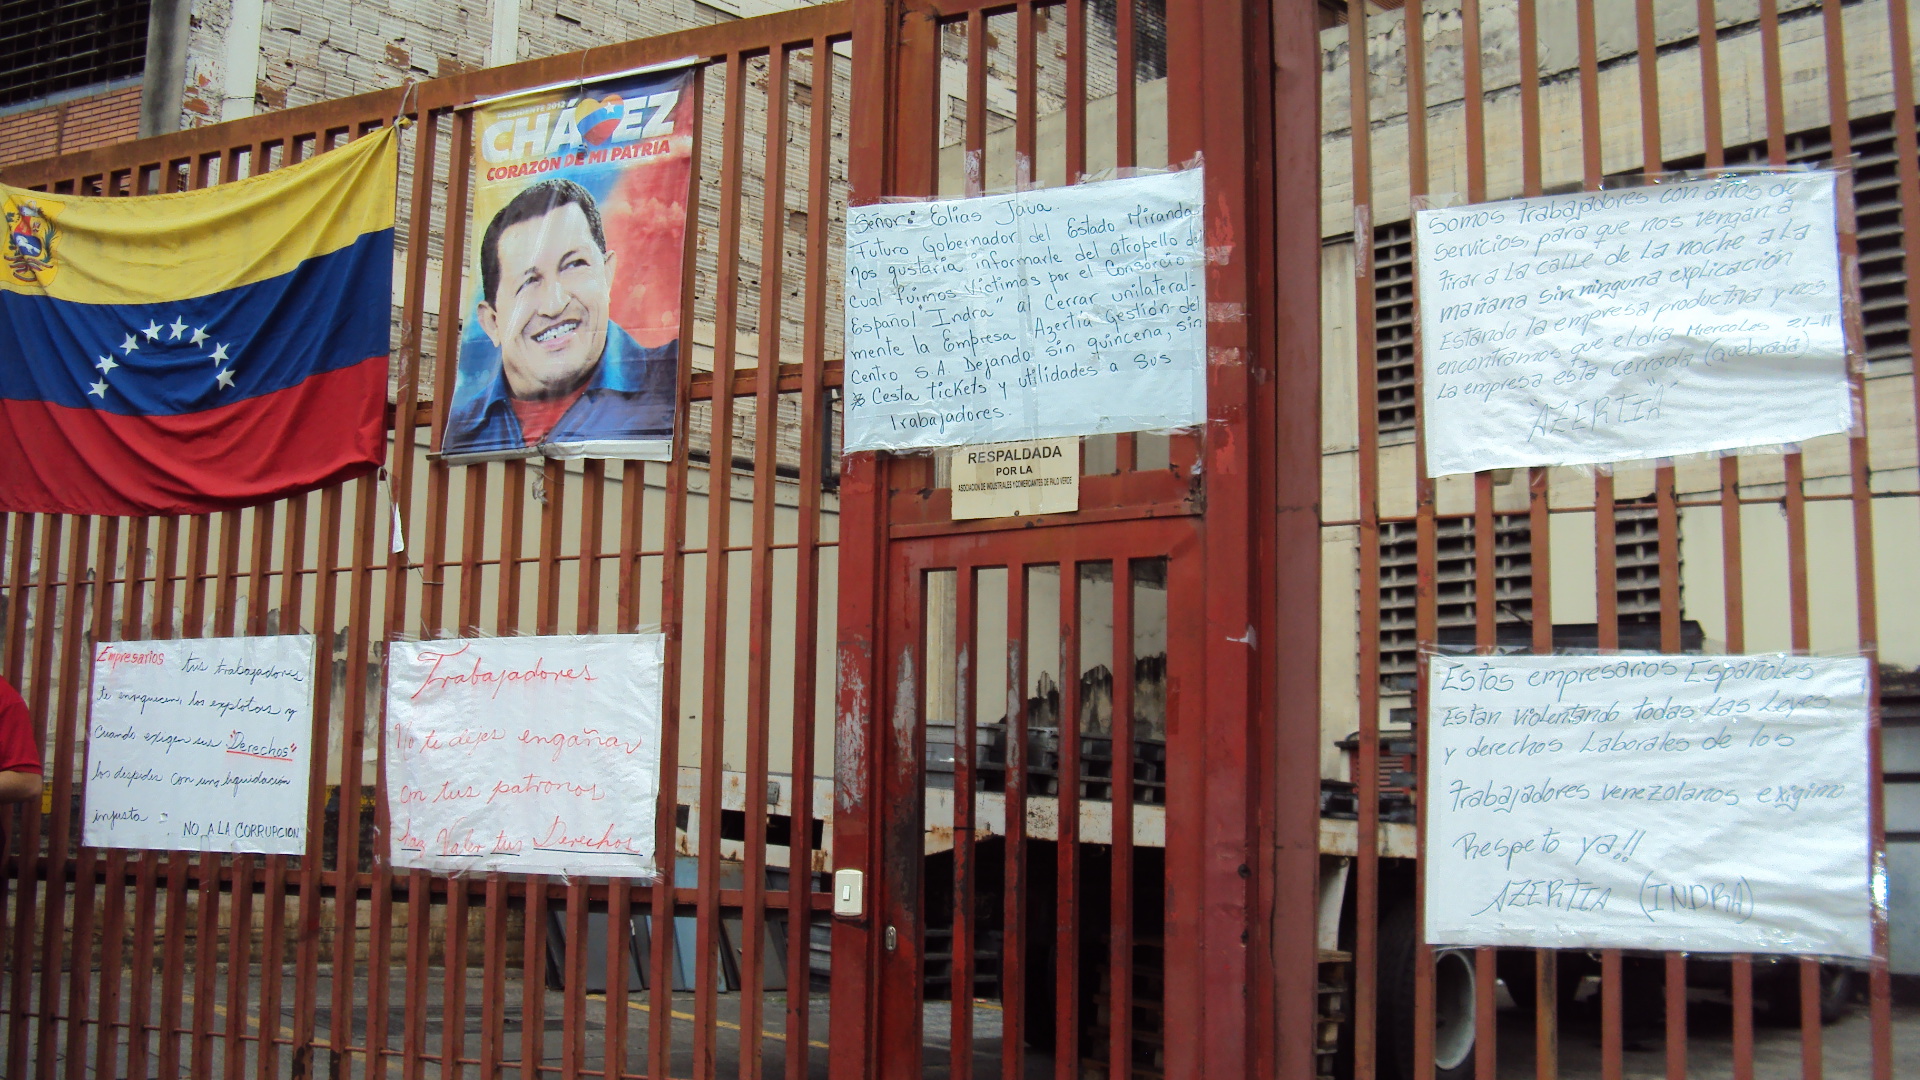 PRESIDENTE 2012
CHÁVEZ
CORAZÓN DE MI PATRIA
Señor: Elías Java.
Futuro Gobernador del Estado Miranda
nos gustaría informarle del atropello del
cual fuimos Víctimas por el Consorcio
Español "Indra" al Cerrar unilateral-
mente la Empresa Azertia Gestión del
Centro S.A. Dejando Sin quincena,
Cesta tickets y utilidades a Sus
Trabajadores.
RESPALDADA
POR LA
ASOCIACION DE INDUSTRIALES Y COMERCIANTES DE PALO VERDE
Somos trabajadores con años de
Servicios, para que nos vengan a
tirar a La calle de La noche a La
mañana sin ninguna explicación
Estando la empresa productiva y nos
encontramos que el día Miercoles 21-11
La empresa esta cerrada (Quebrada)
"AZERTIA"
Empresarios tus trabajadores
te enriquecen, los explotas y
Cuando exigen sus "Derechos"
los despides con una liquidación
injusta.
NO A LA CORRUPCION
Trabajadores
No te dejes engañar
con tus patronos
haz Valer tus Derechos
Estos empresarios Españoles
Estan violentando todas Las Leyes
y derechos Laborales de los
Trabajadores venezolanos exigimo
Respeto ya!!
AZERTIA (INDRA)